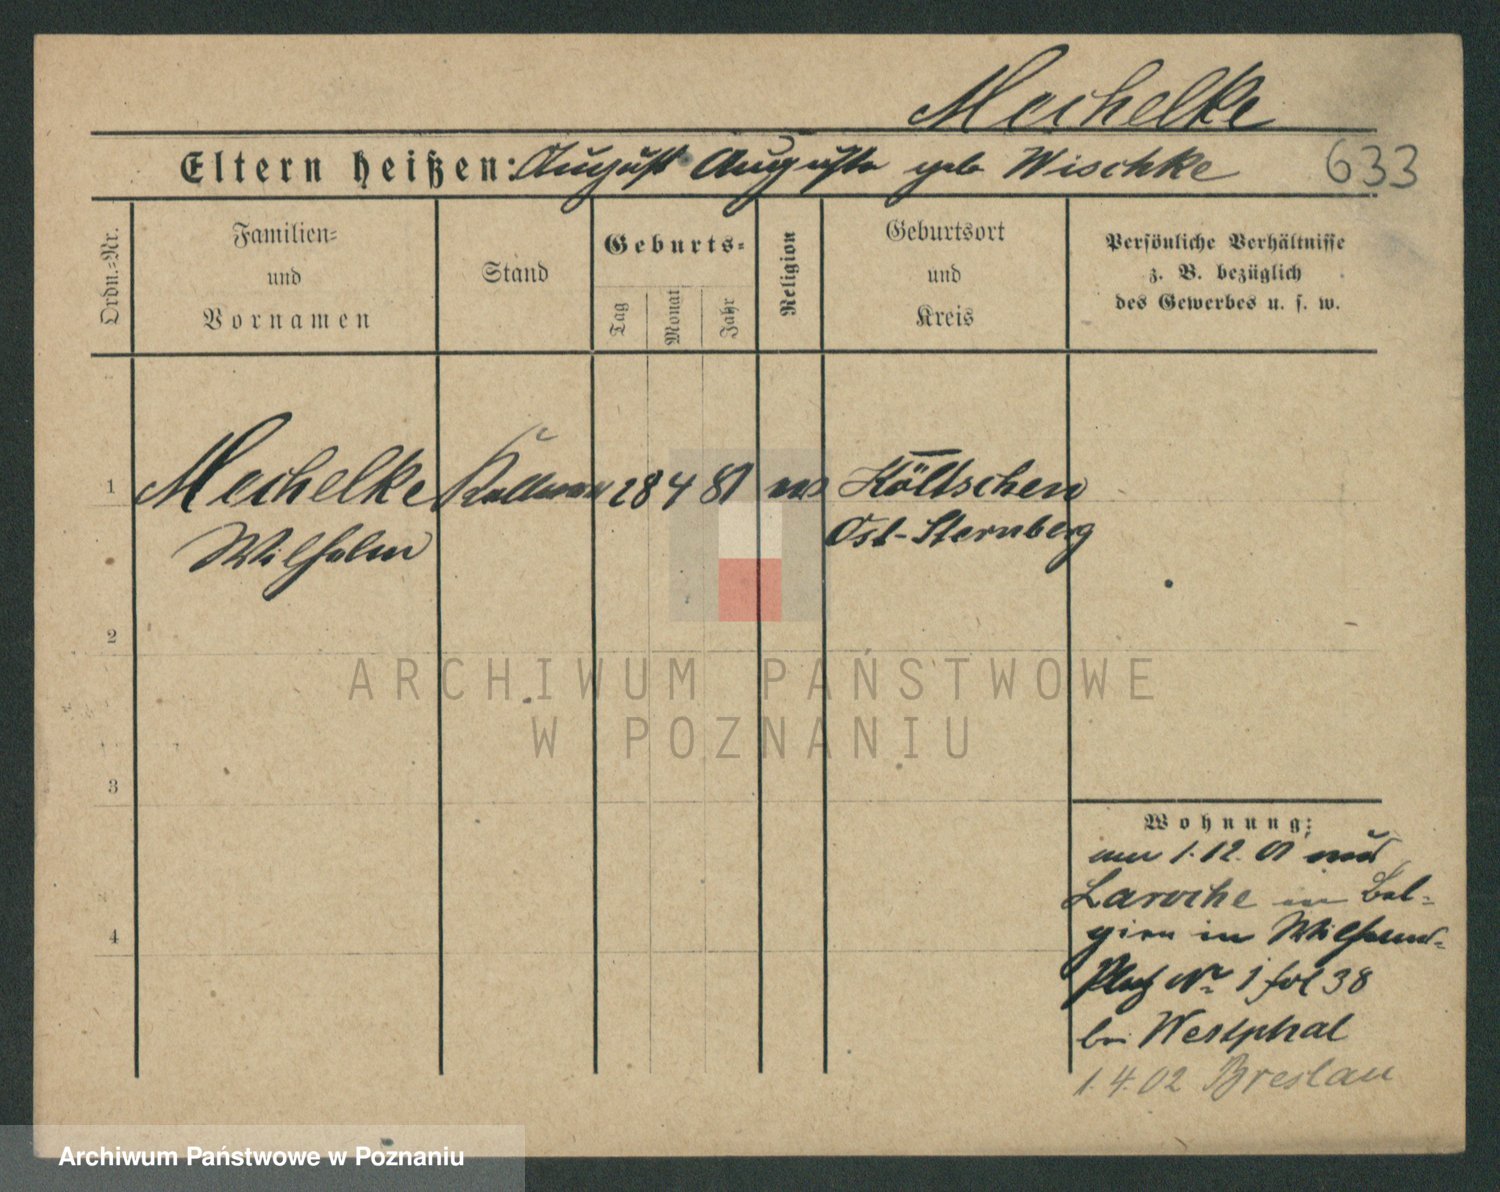 Mechelke
Eltern heißen: August Auguste geb Wischke
633
Ordn.-Nr.
Familien-
und
Vornamen
Stand
Geburts-
Tag
Monat
Jahr
Religion
Geburtsort
und
Kreis
Persönliche Verhältnisse
z. B. bezüglich
des Gewerbes u. s. w.
1 Mechelke Kellner 28 4 81 Költschen
Wilhelm Ost-Sternberg
2
3
4
Wohnung:
1.12.01
Laroche in Bel-
gien in Wilhelm-
Platz No 1 fol 38
bei Westphal
1.4.02 Breslau
ARCHIWUM PAŃSTWOWE
W POZNANIU
Archiwum Państwowe w Poznaniu